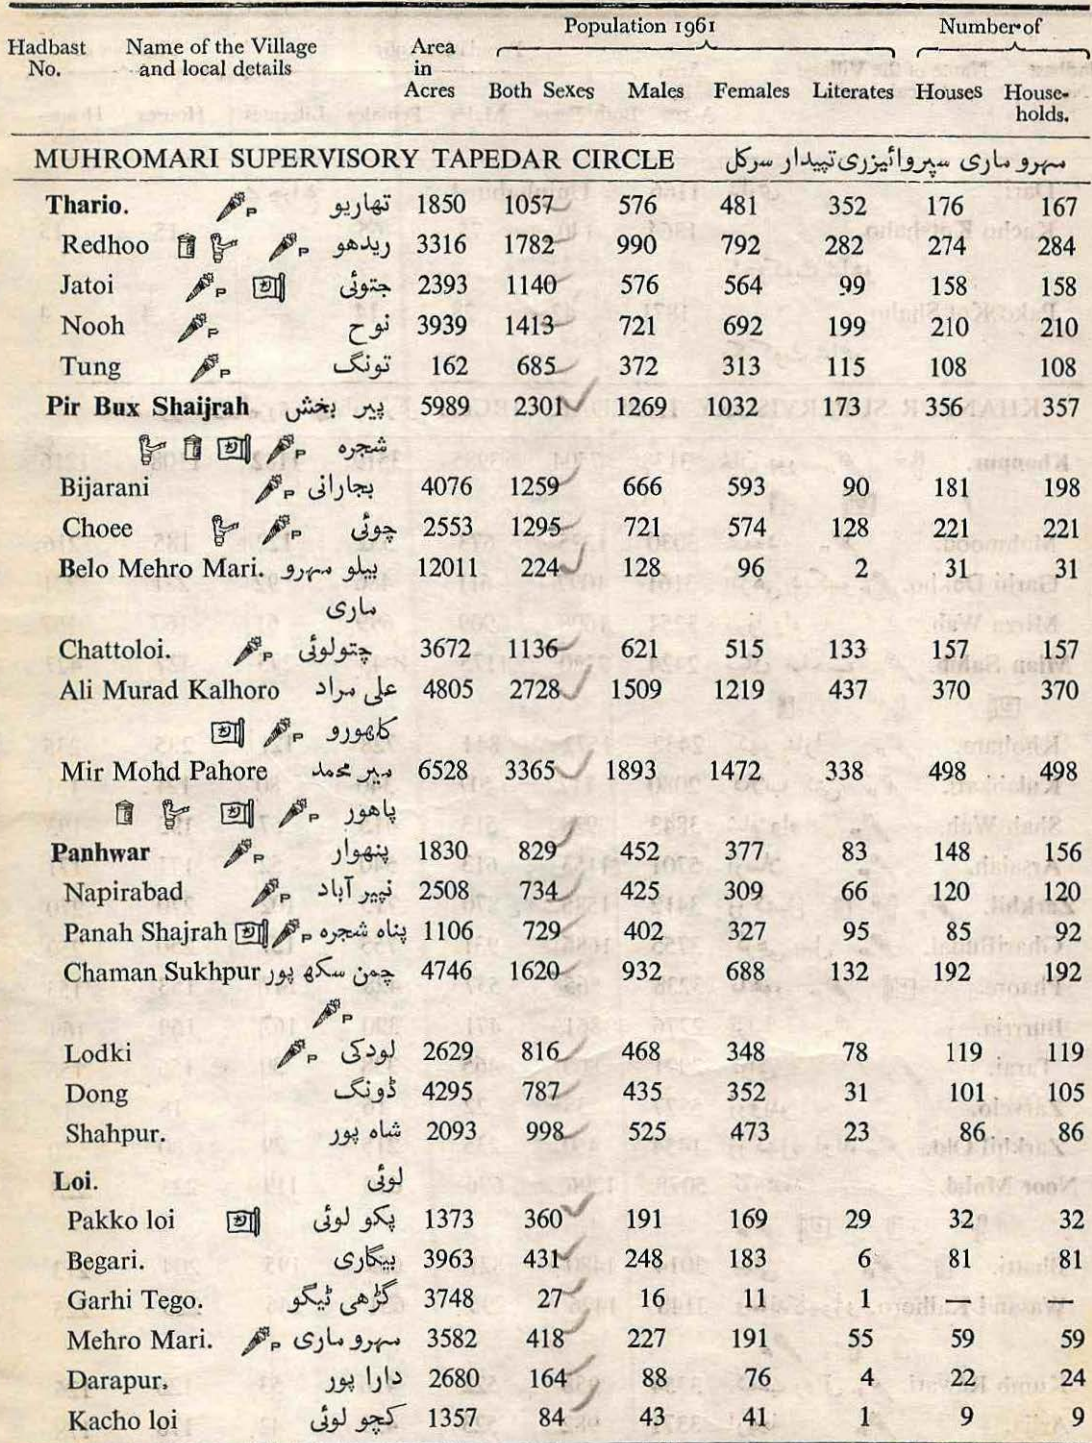 Population 1961 Number of
Hadbast No. Name of the Village and local details Area in Acres Both Sexes Males Females Literates Houses House-holds.
MUHROMARI SUPERVISORY TAPEDAR CIRCLE مهرو ماری سپروائیزری تپیدار سرکل
Thario. P تهاریو 1850 1057 576 481 352 176 167
Redhoo P ریدهو 3316 1782 990 792 282 274 284
Jatoi P جتوئی 2393 1140 576 564 99 158 158
Nooh P نوح 3939 1413 721 692 199 210 210
Tung P تونگ 162 685 372 313 115 108 108
Pir Bux Shaijrah پیر بخش 5989 2301 1269 1032 173 356 357
P شجره
Bijarani P بجارانی 4076 1259 666 593 90 181 198
Choee P چوئی 2553 1295 721 574 128 221 221
Belo Mehro Mari. بیلو مهرو 12011 224 128 96 2 31 31
ماری
Chattoloi. P چتولوئی 3672 1136 621 515 133 157 157
Ali Murad Kalhoro علی مراد 4805 2728 1509 1219 437 370 370
P کلهورو
Mir Mohd Pahore میر محمد 6528 3365 1893 1472 338 498 498
P پاهور
Panhwar P پنهوار 1830 829 452 377 83 148 156
Napirabad P نیپر آباد 2508 734 425 309 66 120 120
Panah Shajrah P پناه شجره 1106 729 402 327 95 85 92
Chaman Sukhpur چمن سکھ پور 4746 1620 932 688 132 192 192
P
Lodki P لودکی 2629 816 468 348 78 119 119
Dong ڈونگ 4295 787 435 352 31 101 105
Shahpur. شاه پور 2093 998 525 473 23 86 86
Loi. لوئی
Pakko loi پکو لوئی 1373 360 191 169 29 32 32
Begari. بیگاری 3963 431 248 183 6 81 81
Garhi Tego. گڑهی ٹیگو 3748 27 16 11 1 — —
Mehro Mari. P مهرو ماری 3582 418 227 191 55 59 59
Darapur. دارا پور 2680 164 88 76 4 22 24
Kacho loi کچو لوئی 1357 84 43 41 1 9 9